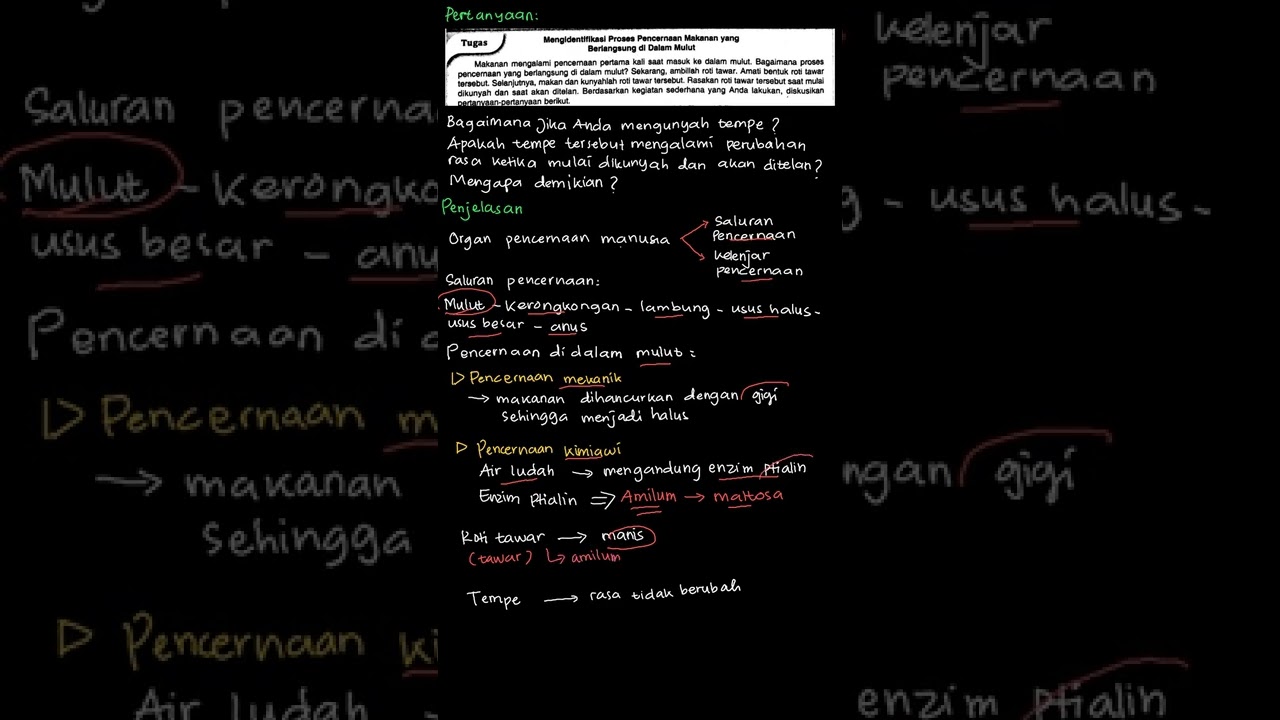 Pertanyaan:
Tugas
Mengidentifikasi Proses Pencernaan Makanan yang
Berlangsung di Dalam Mulut
Makanan mengalami pencernaan pertama kali saat masuk ke dalam mulut. Bagaimana proses
pencernaan yang berlangsung di dalam mulut? Sekarang, ambillah roti tawar. Amati bentuk roti tawar
tersebut. Selanjutnya, makan dan kunyahlah roti tawar tersebut. Rasakan roti tawar tersebut saat mulai
dikunyah dan saat akan ditelan. Berdasarkan kegiatan sederhana yang Anda lakukan, diskusikan
pertanyaan-pertanyaan berikut.
Bagaimana Jika Anda mengunyah tempe ?
Apakah tempe tersebut mengalami perubahan
rasa ketika mulai dikunyah dan akan ditelan?
Mengapa demikian ?
Penjelasan
Organ pencernaan manusia
Saluran
Pencernaan
kelenjar
pencernaan
Saluran pencernaan:
Mulut - Kerongkongan - lambung - usus halus -
usus besar - anus
Pencernaan di dalam mulut :
Pencernaan mekanik
→ makanan dihancurkan dengan gigi
sehingga menjadi halus
Pencernaan kimiawi
Air ludah → mengandung enzim ptialin
Enzim Ptialin ⇒ Amilum → maltosa
Roti tawar → manis
(tawar) ↳ amilum
Tempe → rasa tidak berubah
Saluran pencerna
Mulut - Kerongko
usus besar - anu
Pencernaan di d
Pencernaan m
→ makanan
sehingga
Pencernaan ki
Air ludah
kelenjar
pencernaan
g - usus halus -
ngan gigi
enzim ptialin